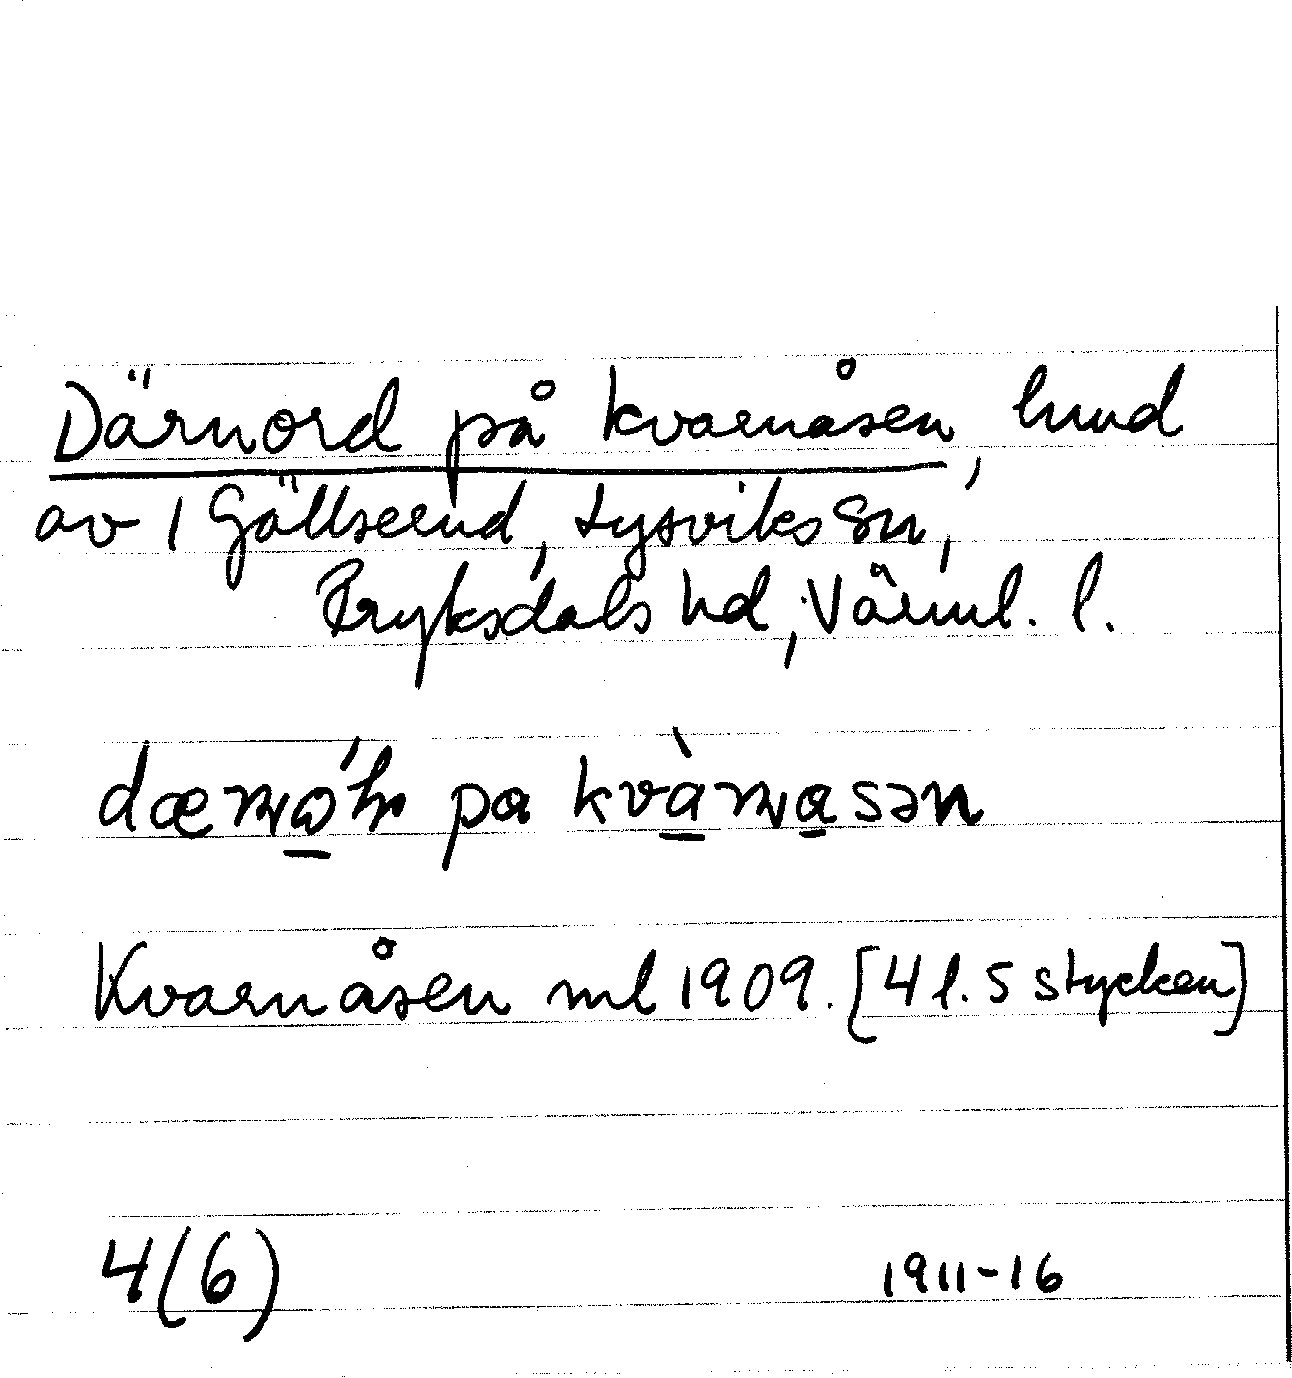 Därnord på kvarnåsen, hmd
av 1 Gällserud, Lysviks sn,
Fryksdals hd, Värml. l.
pa
Kvarnåsen ml 1909. [4 l. 5 stycken]
4(6)
1911-16